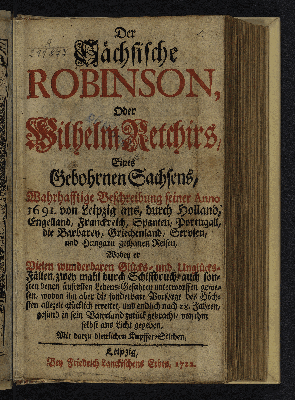 Der
Sächsische
ROBINSON,
Oder
Wilhelm Retchirs,
Eines
Gebohrnen Sachsens,
Wahrhafftige Beschreibung seiner Anno
1691. von Leipzig aus, durch Holland,
Engelland, Franckreich, Spanien, Portugall,
die Barbarey, Griechenland, Servien,
und Hungarn gethanen Reisen,
Wobey er
Vielen wunderbaren Glücks- und Unglücks-
Fällen, zwey mahl durch Schiffbruch auch son-
sten denen äusersten Lebens-Gefahren unterworffen gewe-
sen, wovon ihn aber die sonderbare Vorsorge des Höch-
sten allezeit glücklich errettet, und endlich nach Jahren,
gesund in sein Vaterland zurück gebracht, von ihm
selbst ans Licht gegeben.
Mit darzu dienlichen Kupffer-Stichen.
Leipzig,
Bey Friedrich Lanckischens Erben, 1722.